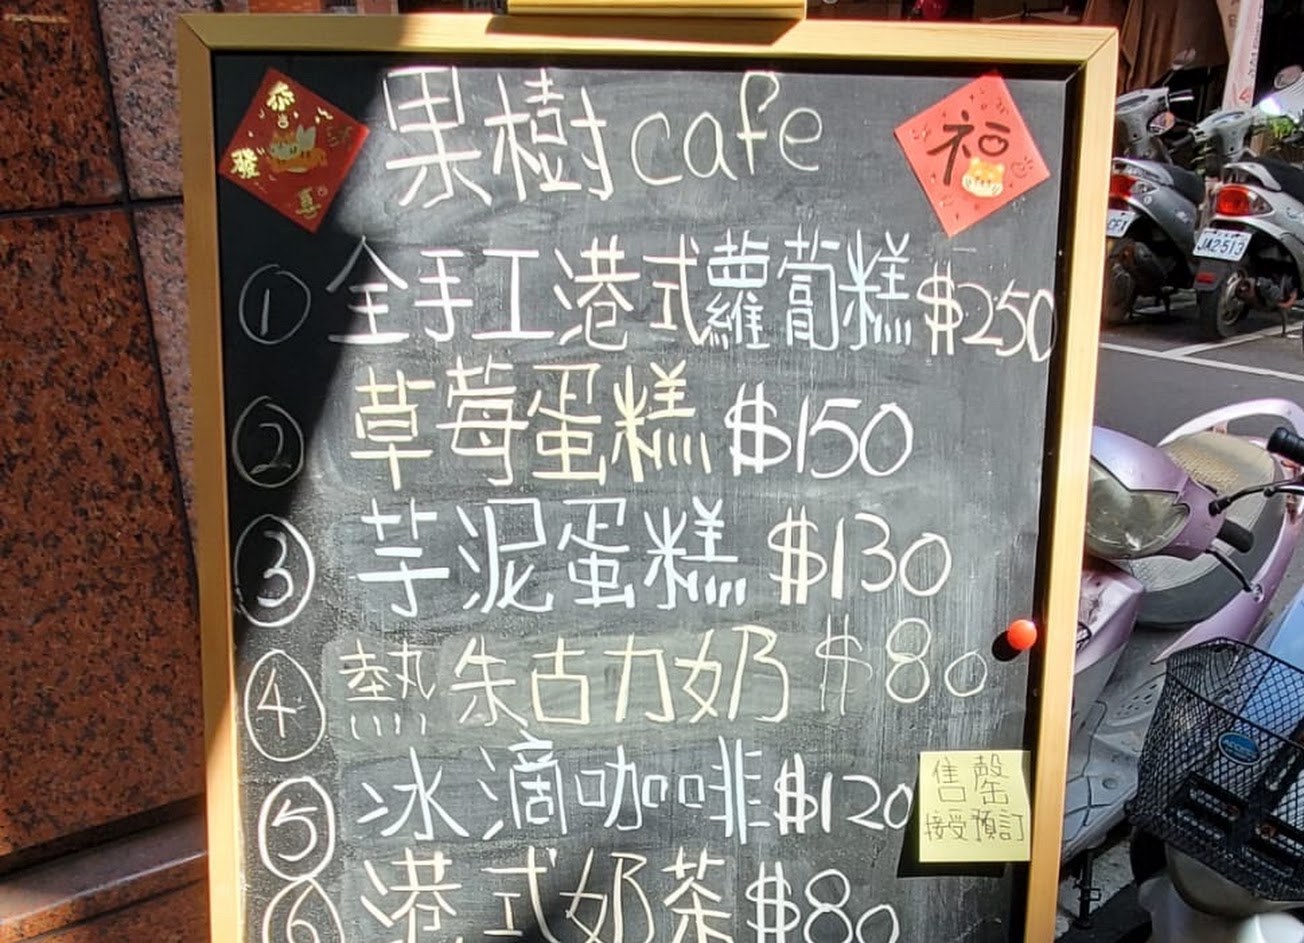 果樹cafe
恭
發
喜
福
① 全手工港式蘿蔔糕$250
② 草莓蛋糕$150
③ 芋泥蛋糕$130
④ 熱朱古力奶$80
⑤ 冰滴咖啡$120
售罄
接受預訂
⑥ 港式奶茶$80
JA2-513